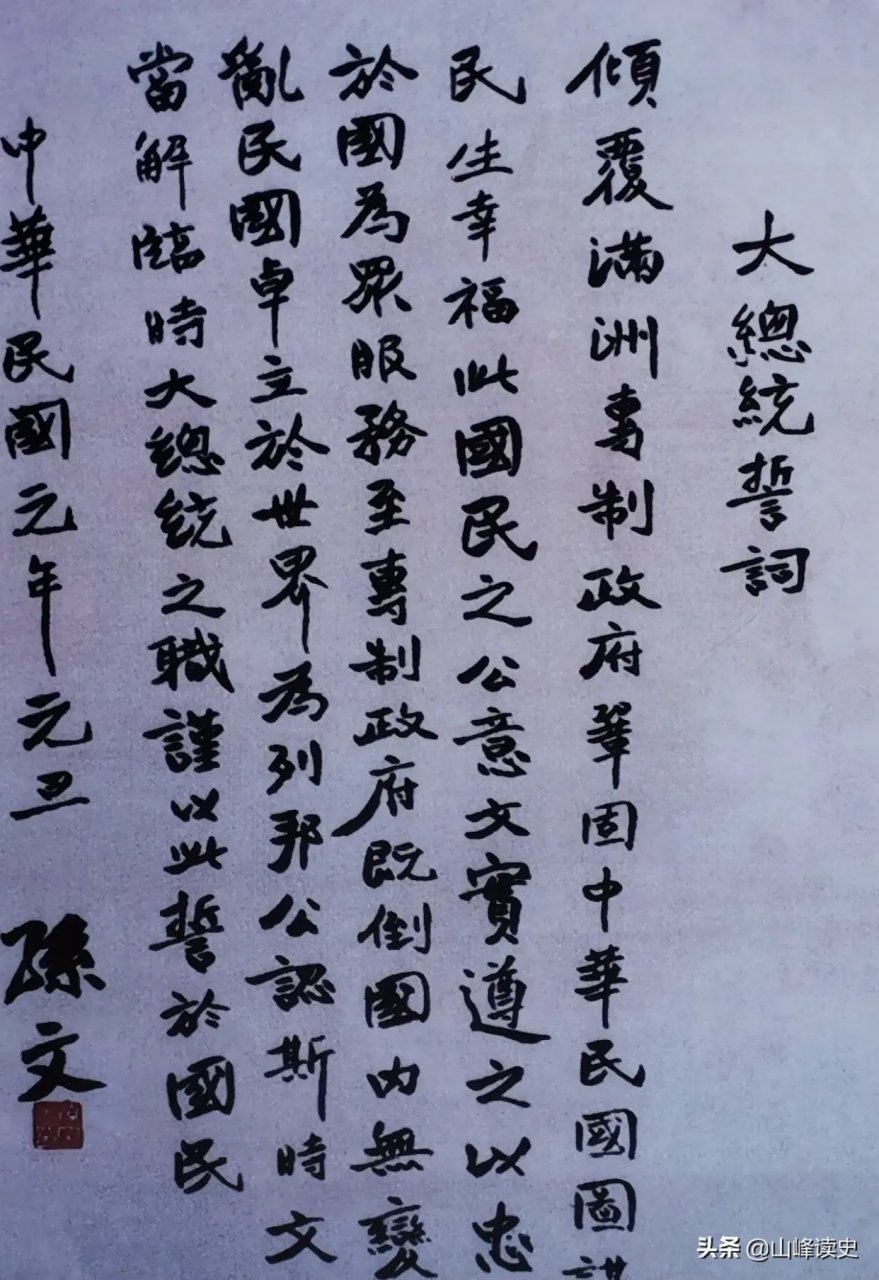 大總統誓詞
傾覆滿洲專制政府鞏固中華民國圖謀
民生幸福此國民之公意文實遵之以忠
於國為眾服務至專制政府既倒國內無變
亂民國卓立於世界為列邦公認斯時文
當解臨時大總統之職謹以此誓於國民
中華民國元年元旦 孫文
头条 @山峰读史